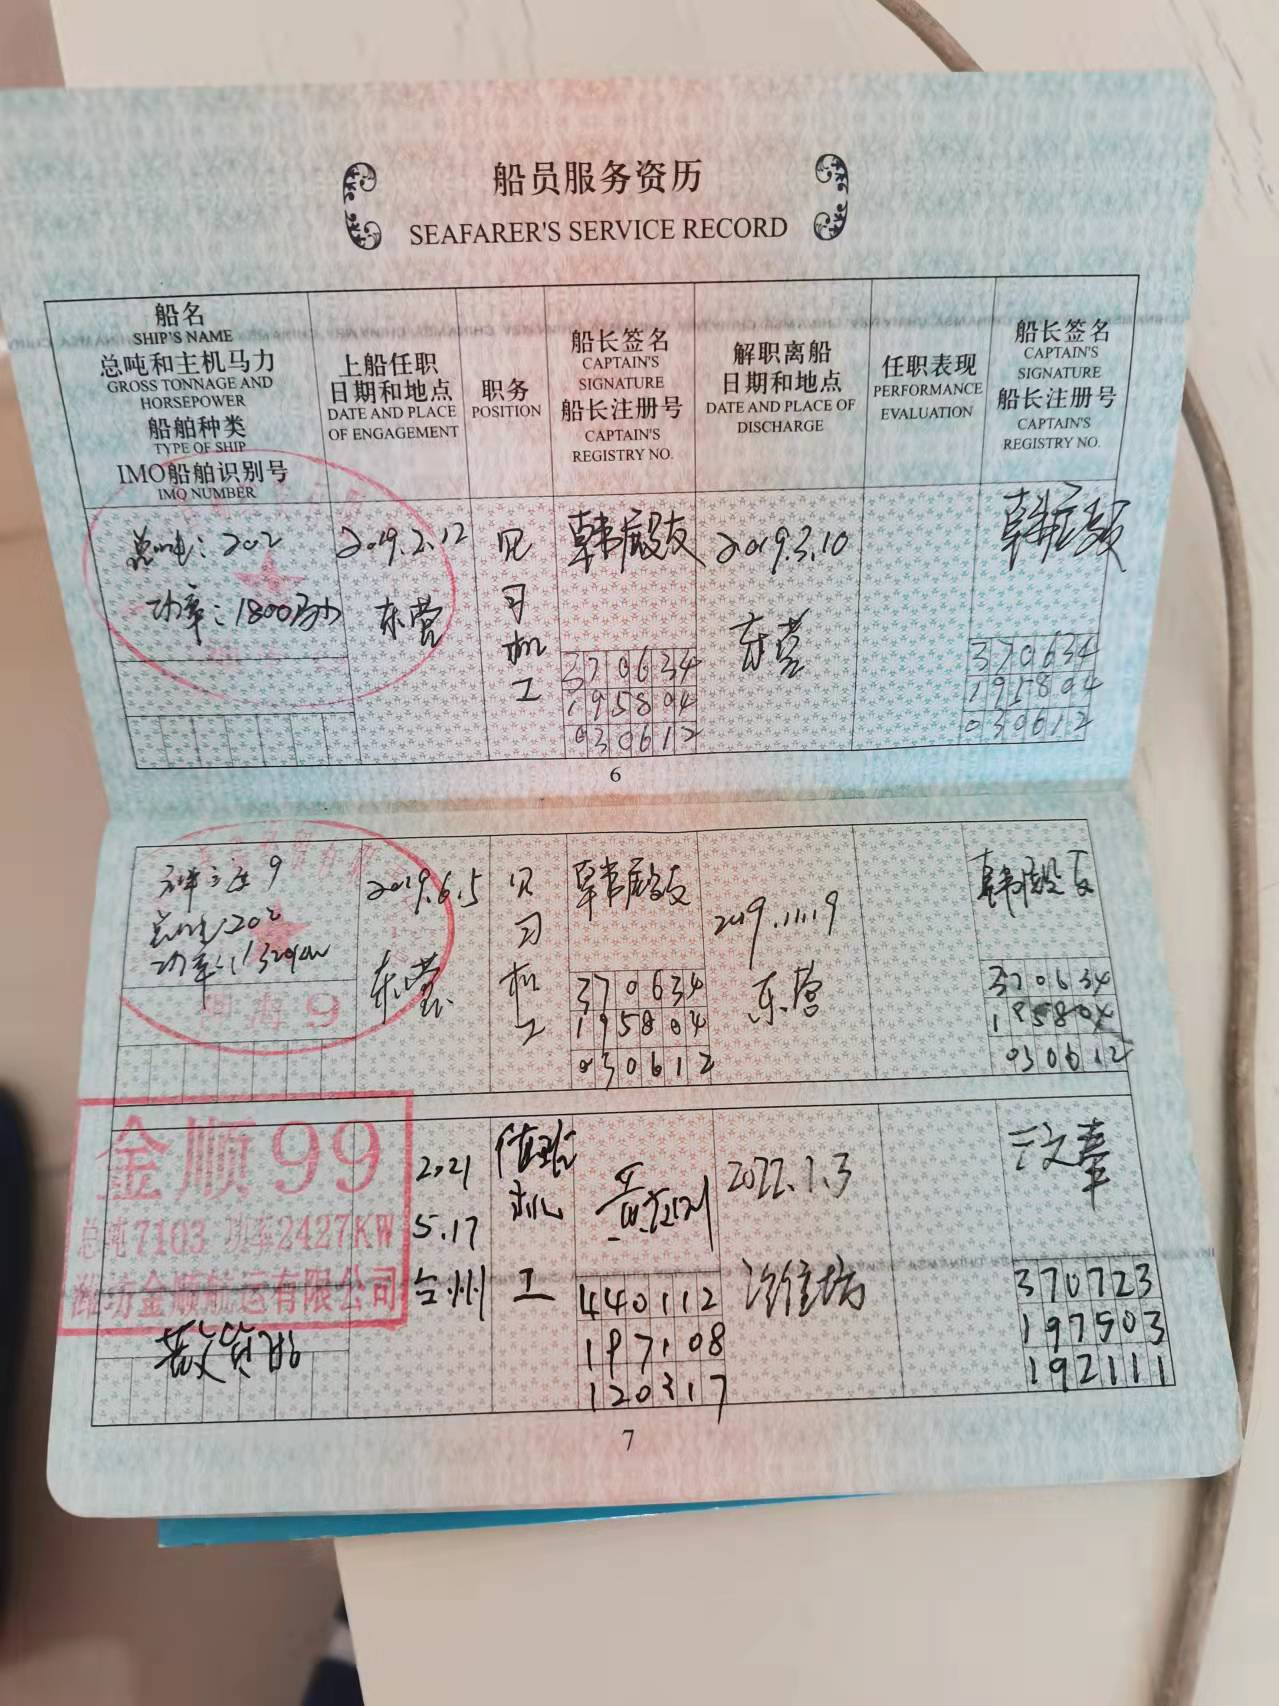 船员服务资历
SEAFARER'S SERVICE RECORD
船名
SHIP'S NAME
总吨和主机马力
GROSS TONNAGE AND
HORSEPOWER
船舶种类
TYPE OF SHIP
IMO船舶识别号
IMO NUMBER
上船任职
日期和地点
DATE AND PLACE
OF ENGAGEMENT
职务
POSITION
船长签名
CAPTAIN'S
SIGNATURE
船长注册号
CAPTAIN'S
REGISTRY NO.
解职离船
日期和地点
DATE AND PLACE OF
DISCHARGE
任职表现
PERFORMANCE
EVALUATION
船长签名
CAPTAIN'S
SIGNATURE
船长注册号
CAPTAIN'S
REGISTRY NO.
总吨:202
功率:1800马力
2019.2.12
东营
见
习
机
工
370634
195804
030612
2019.3.10
东营
370634
195804
030612
6
9
总吨:202
功率:1320KW
2019.6.5
东营
见
习
机
工
370634
195804
030612
2019.11.9
东营
370634
195804
030612
金顺99
总吨7103 功率2427KW
潍坊金顺航运有限公司
散货船
2021
5.17
台州
值班
机
工
440112
197108
120317
2022.1.3
潍坊
370723
197503
192111
7